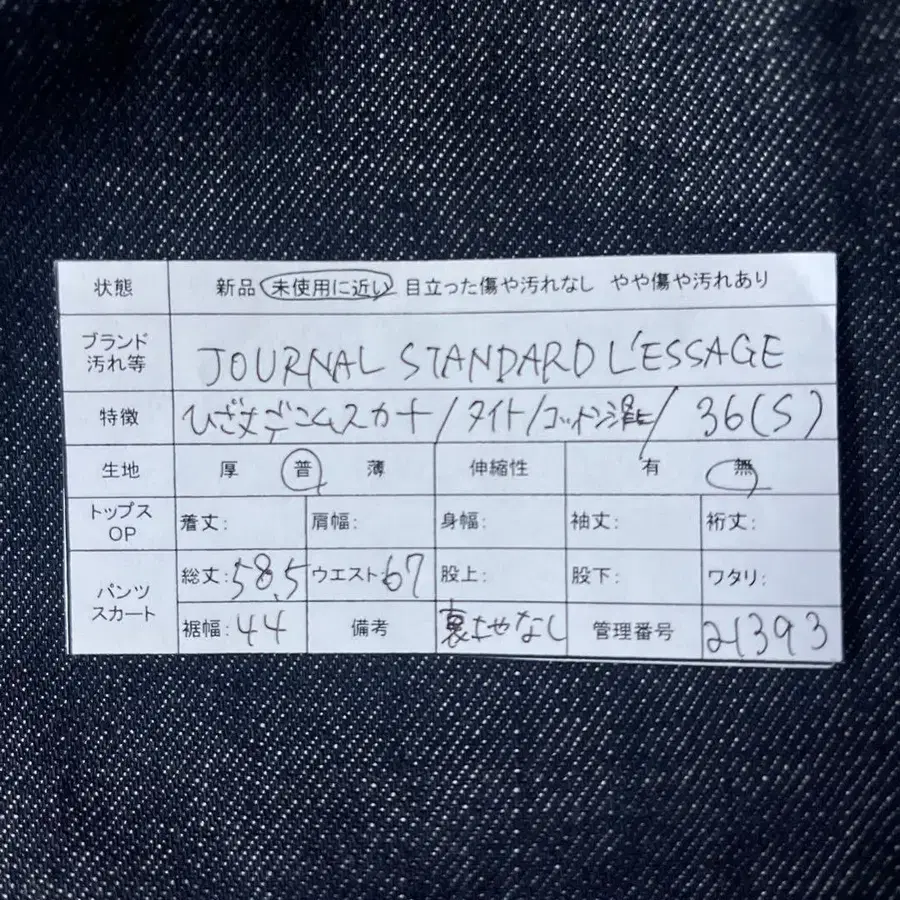 状態 新品 未使用に近い 目立った傷や汚れなし やや傷や汚れあり
ブランド
汚れ等 JOURNAL STANDARD L'ESSAGE
特徴 ひざ丈デニムスカート/タイト/コットン混/36(S)
生地 厚 普 薄 伸縮性 有 無
トップス
OP 着丈: 肩幅: 身幅: 袖丈: 裄丈:
パンツ
スカート 総丈:58.5 ウエスト:67 股上: 股下: ワタリ:
裾幅:44 備考 裏地なし 管理番号 21393